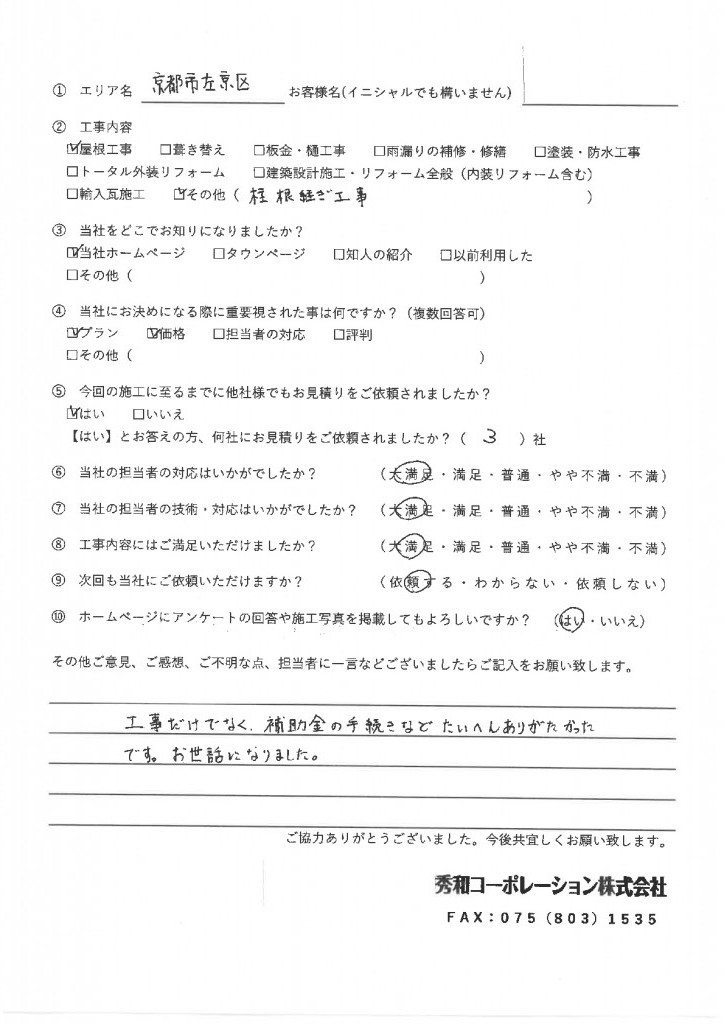 ① エリア名 京都市左京区 お客様名(イニシャルでも構いません)
② 工事内容
☑屋根工事 □葺き替え □板金・樋工事 □雨漏りの補修・修繕 □塗装・防水工事
□トータル外装リフォーム □建築設計施工・リフォーム全般（内装リフォーム含む）
□輸入瓦施工 ☑その他（ 柱 根継ぎ工事 ）
③ 当社をどこでお知りになりましたか？
☑当社ホームページ □タウンページ □知人の紹介 □以前利用した
□その他（ ）
④ 当社にお決めになる際に重要視された事は何ですか？（複数回答可）
☑プラン ☑価格 □担当者の対応 □評判
□その他（ ）
⑤ 今回の施工に至るまでに他社様でもお見積りをご依頼されましたか？
☑はい □いいえ
【はい】とお答えの方、何社にお見積りをご依頼されましたか？（ 3 ）社
⑥ 当社の担当者の対応はいかがでしたか？ （大満足・満足・普通・やや不満・不満）
⑦ 当社の担当者の技術・対応はいかがでしたか？ （大満足・満足・普通・やや不満・不満）
⑧ 工事内容にはご満足いただけましたか？ （大満足・満足・普通・やや不満・不満）
⑨ 次回も当社にご依頼いただけますか？ （依頼する・わからない・依頼しない）
⑩ ホームページにアンケートの回答や施工写真を掲載してもよろしいですか？ （はい・いいえ）
その他ご意見、ご感想、ご不明な点、担当者に一言などございましたらご記入をお願い致します。
工事だけでなく、補助金の手続きなど たいへんありがたかった
です。お世話になりました。
ご協力ありがとうございました。今後共宜しくお願い致します。
秀和コーポレーション株式会社
FAX：075（803）1535